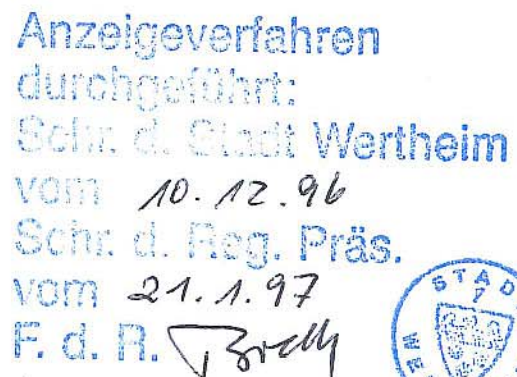 Anzeigeverfahren
durchgeführt:
Schr. d. Stadt Wertheim
vom 10.12.96
Schr. d. Reg. Präs.
vom 21.1.97
F. d. R.
STAD
7
WE